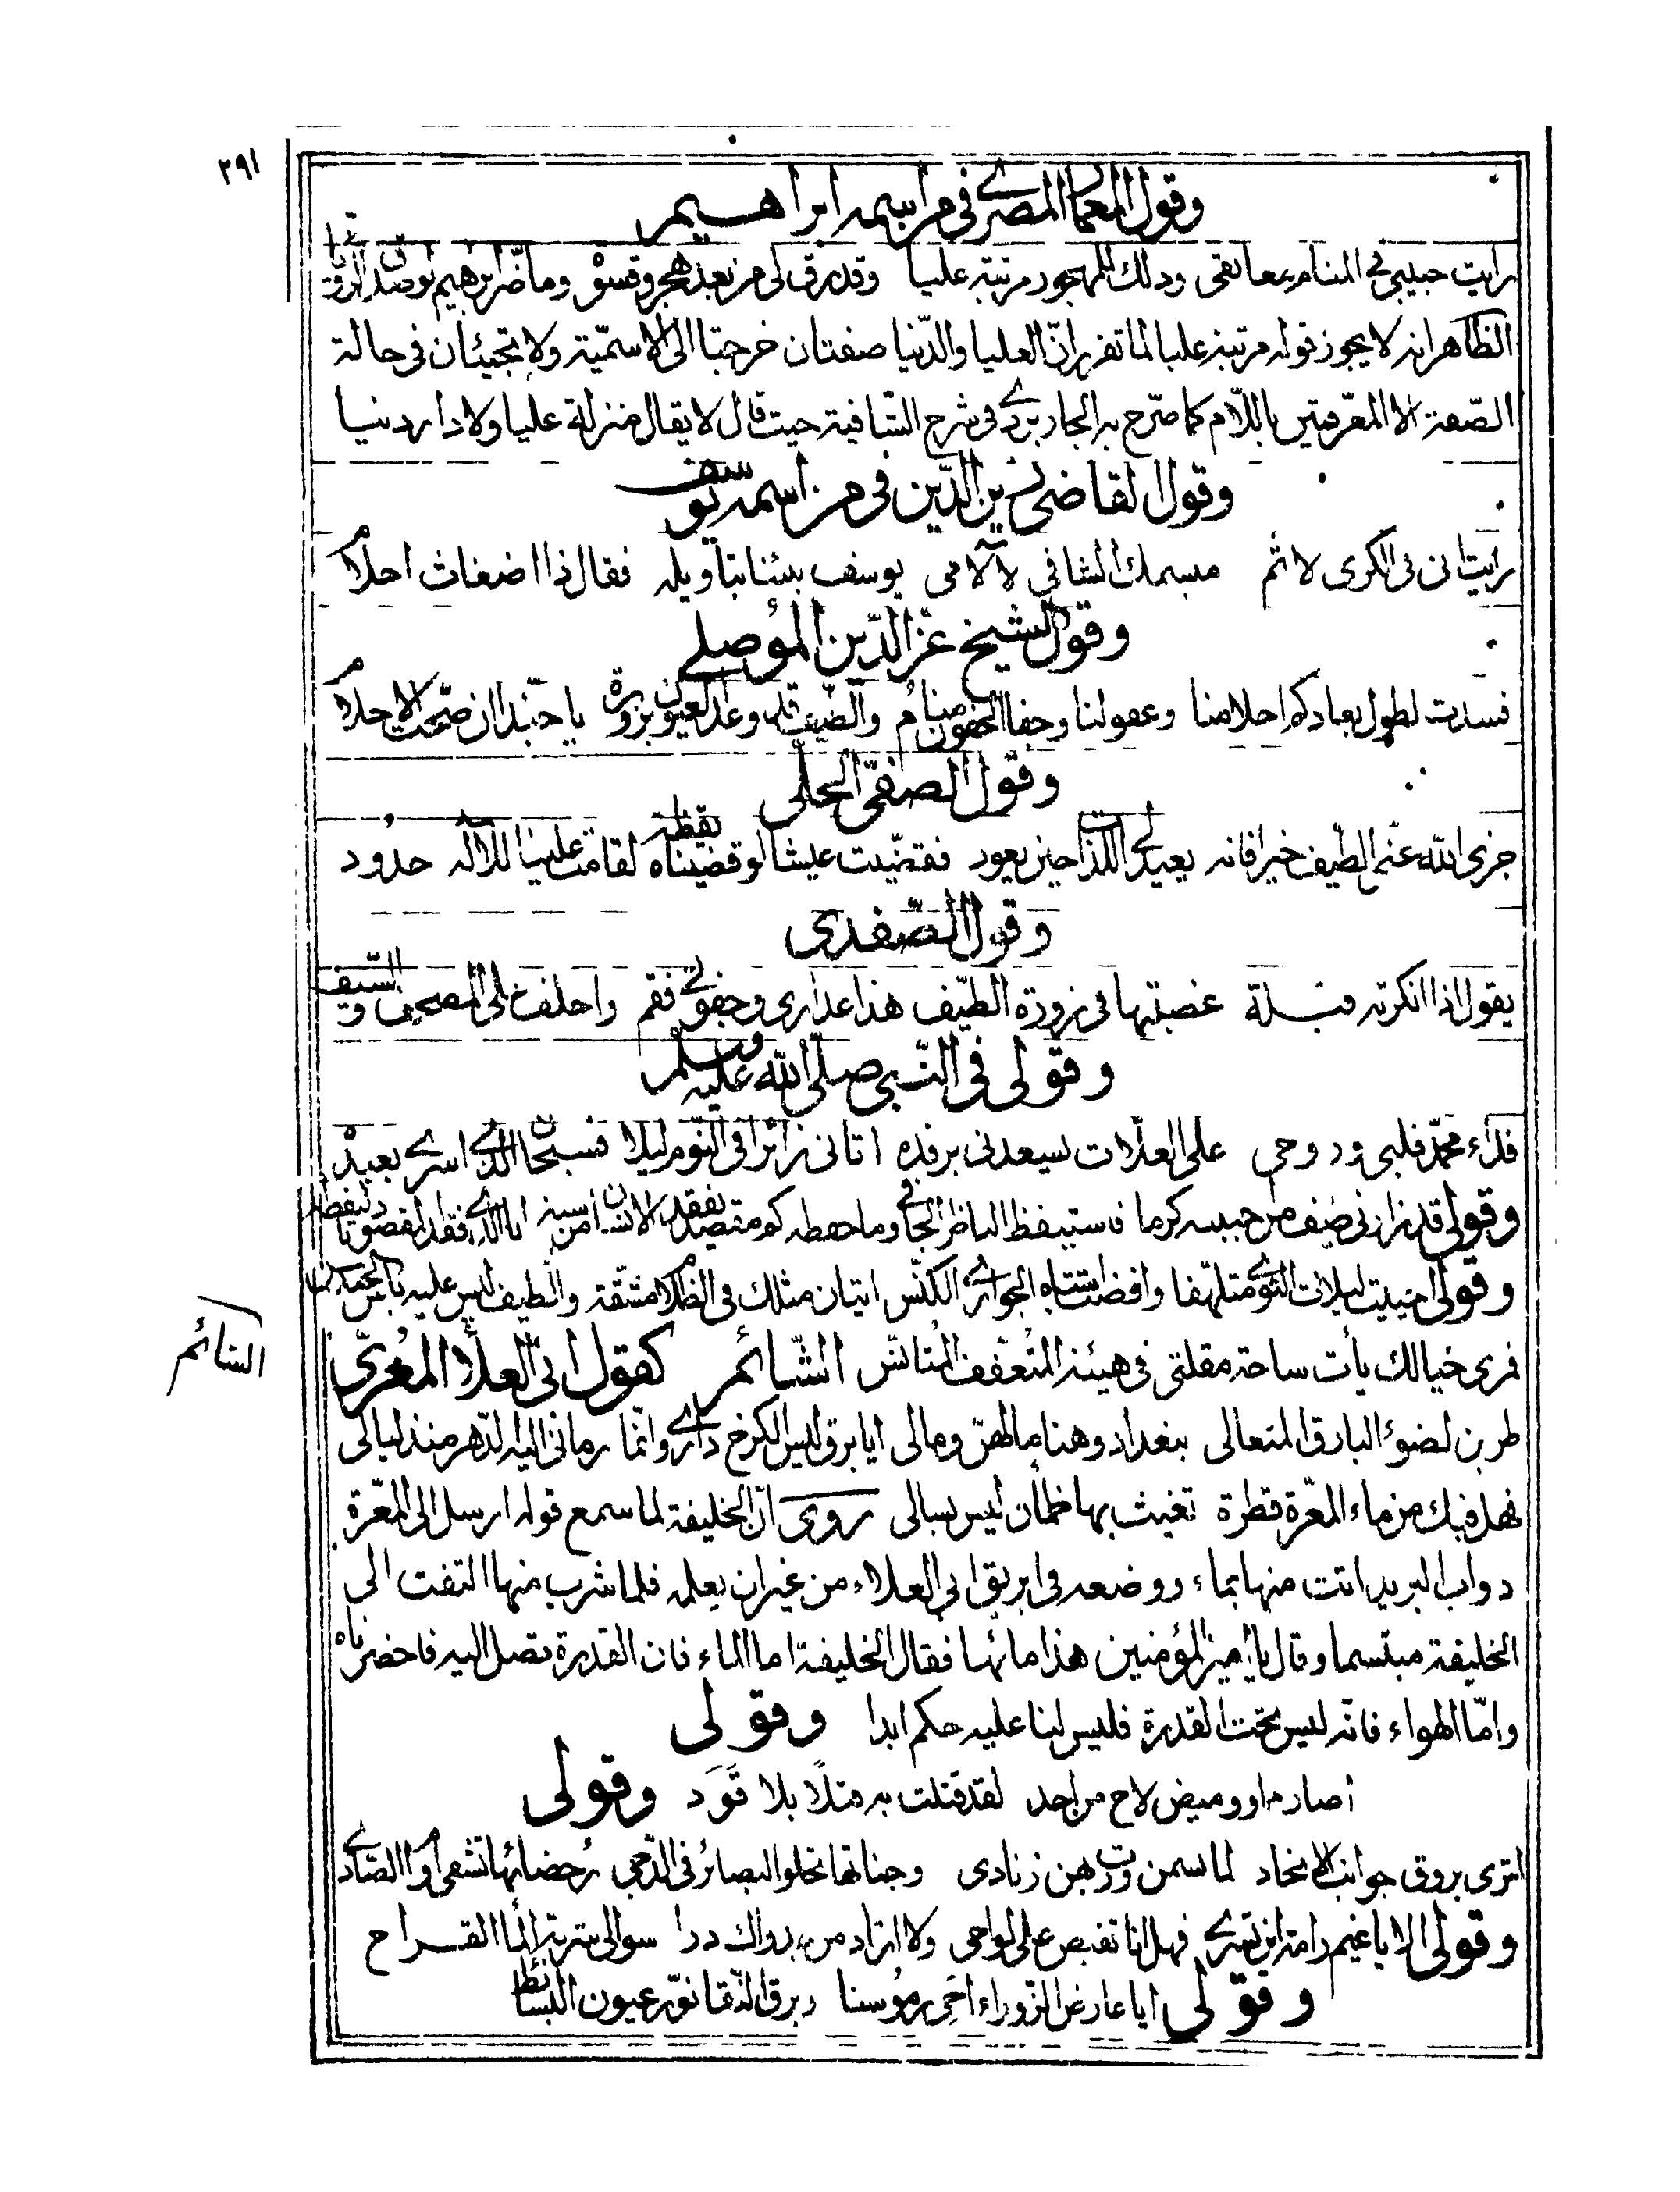 ٢٩١
وقول المعمار المصري في من اسمه ابراهيم
رايت حبيبي في المنام معانقي وذلك للمهجور مرتبة عليا وقد رق لي من بعد هجر وقسوة وما ضر ابرهيم لو صدق الرؤيا
الظاهر انه لا يجوز قوله مرتبة عليا لما تقرر ان العليا والدنيا صفتان خرجتا الى الاسمية ولا تجيئان في حالة
الصفة الا المعرفتين باللام كما صرح به الجاربردي في شرح الشافية حيث قال لا يقال منزلة عليا ولا دار دنيا
وقول القاضي زين الدين في من اسمه يوسف
رايتاني في الكرى لاثم مبسمك الشافي لآلامي يوسف نبئنا بتاويله فقال ذا اضغاث احلام
وقول الشيخ عز الدين الموصلي
فسدت لطول بعادكم احلامنا وعقولنا وجفا الجفون منام والضيف قد وعد العيون بزورة يا حبذا ان صحت الاحلام
وقول الصفي الحلي
جزى الله عنا الطيف خيرا فانه يعيد لي اللذات حين يعود فقضيت عيشا لو قضيناه يقظة لقامت علينا للاله حدود
وقول الصفدي
يقول اذا انكرته قبلة غصبتها في زورة الطيف هذا عذاري وجفوني فقم واحلف على المصحف والسيف
وقولي في النبي صلى الله عليه وسلم
فداء محمد قلبي وروحي على العلات يسعدني برفده اتاني زائرا في النوم ليلا فسبحان الذي اسرى بعبده
وقولي قد زارني ضيف من حبيبه كرما فاستيقظ الناظر الجافي وما حفظه
وقولي احييت ليلات النوى متلهفا اتيان مثلك في الظلام مشقة والطيف ليس عليه باس
فمري خيالك يأت ساحة مقلتي في هيئة المتعفف المتانس الشائم كقول ابي العلاء المعري
الشائم
طربن لضوء البارق المتعالي ببغداد وهنا ما لهن وما لي ايا برق ليس الكرخ داري وانما رماني اليه الدهر منذ ليالي
فهل فيك من ماء المعرة قطرة تغيث بها ظمآن ليس بسالي روى ان الخليفة لما سمع قوله ارسل الى المعرة
دواب البريد اتت منها بماء ووضعه في ابريق ابي العلاء من غير ان يعلمه فلما شرب منها التفت الى
الخليفة مبتسما وقال يا امير المؤمنين هذا مائها فقال الخليفة اما الماء فان القدرة تصل اليه فاحضرناه
واما الهواء فانه ليس تحت القدرة فليس لنا عليه حكم ابدا وقولي
أصارم او وميض لاح من احد لقد قتلت به قتلا بلا قود وقولي
اترى بروق جوانب الانجاد لما بسمن وريت بهن زنادي وجناتها تجلو البصائر في الدجى رحضائها تشفي اوام الصادي
وقولي الا يا غيم رامة اين تسري فهل انا تفيض على لواحي ولا ازاد من برواك درا سوالي شربة الما القراح
وقولي ايا عارض الزوراء احي رموسنا وبرق النقا نور عيون البسائط